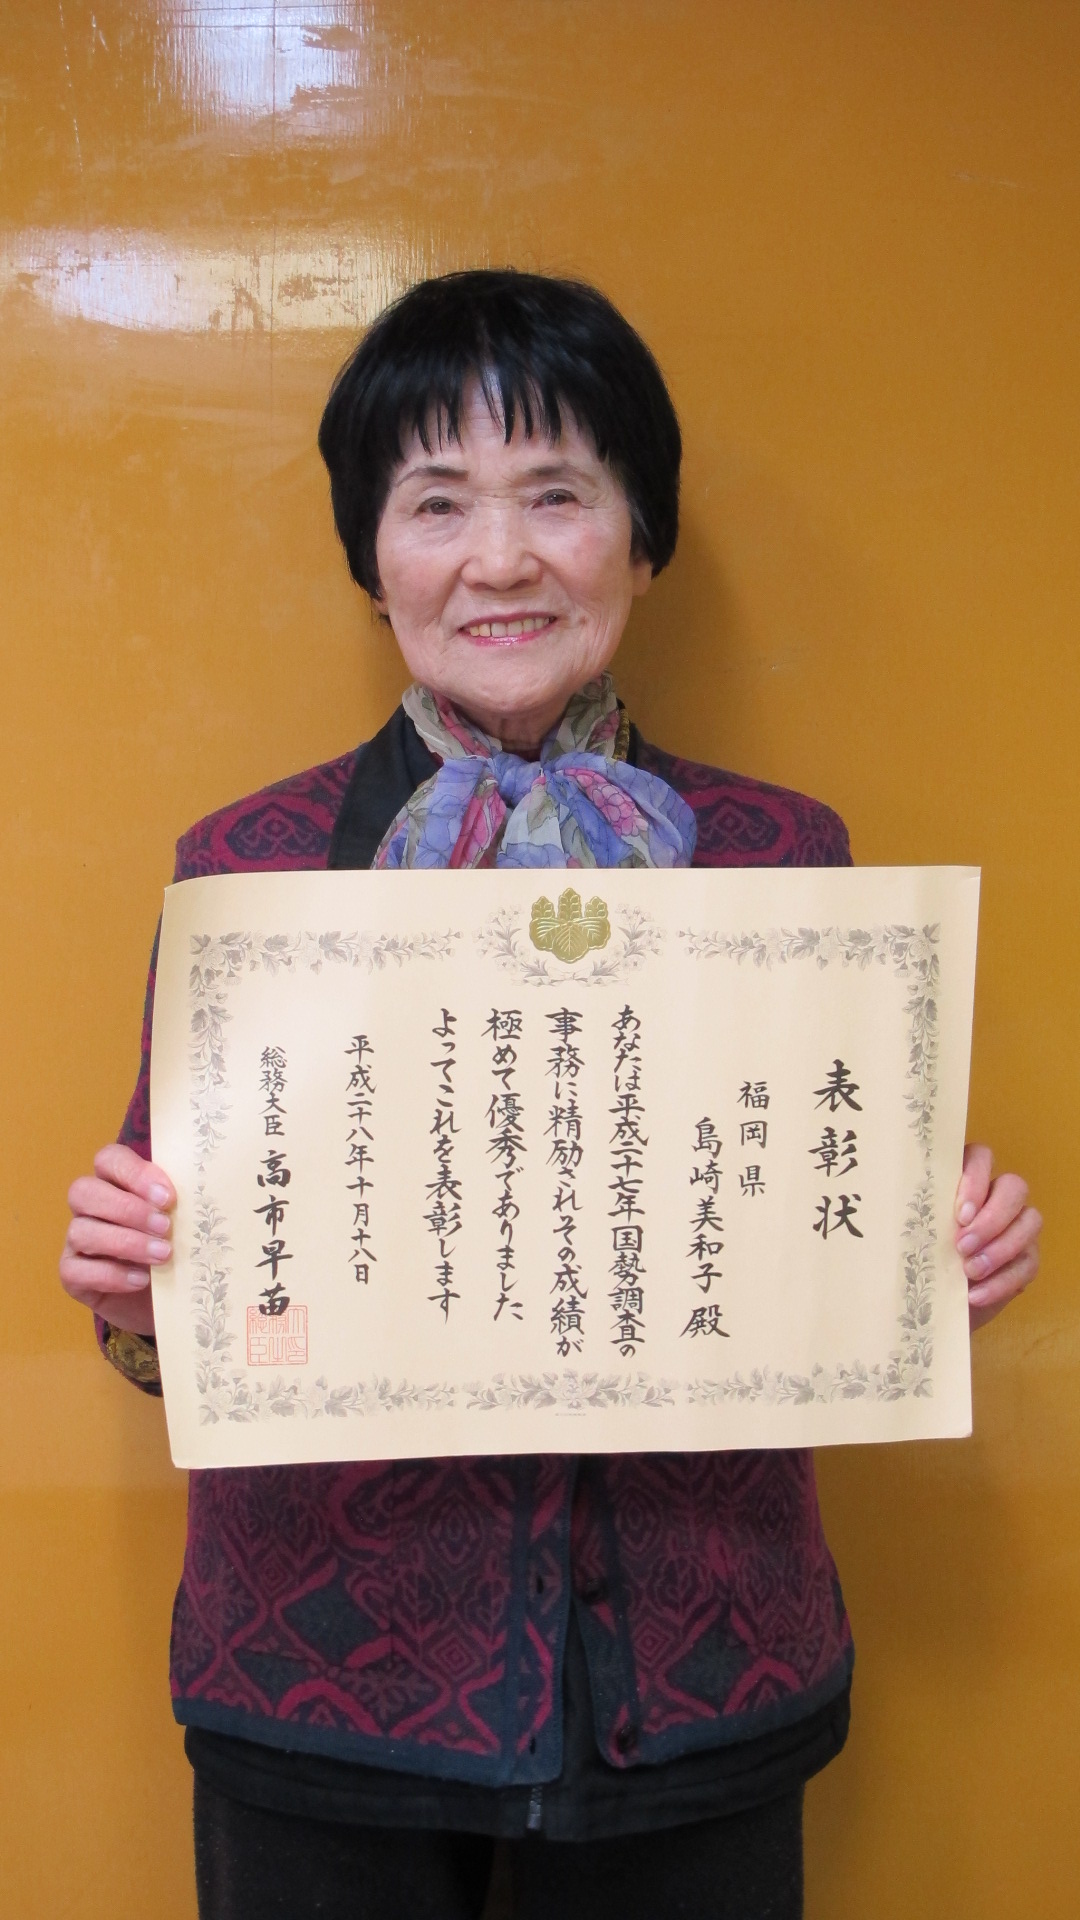 表彰状
福岡県
島崎美和子殿
あなたは平成二十七年国勢調査の
事務に精励されその成績が
極めて優秀でありました
よってこれを表彰します
平成二十八年十月十八日
総務大臣 高市早苗